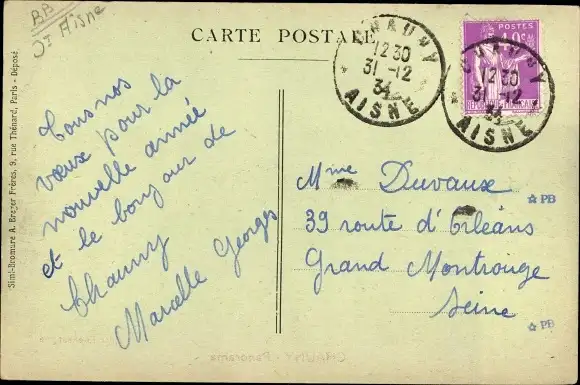 BB
Dt Aisne
CARTE POSTALE
CHAUNY
12 30
31 -12
34
AISNE
POSTES
CHAUNY
12 30
31 -12
34
AISNE
Tous nos
vœux pour la
nouvelle année
et le bonjour de
Chauny
Marcelle Georges
Mme Duvaux
39 route d'Orléans
Grand Montrouge
Seine
PB
PB
Simi-Bromure A. Breger Frères, 9, rue Thénard, Paris - Déposé